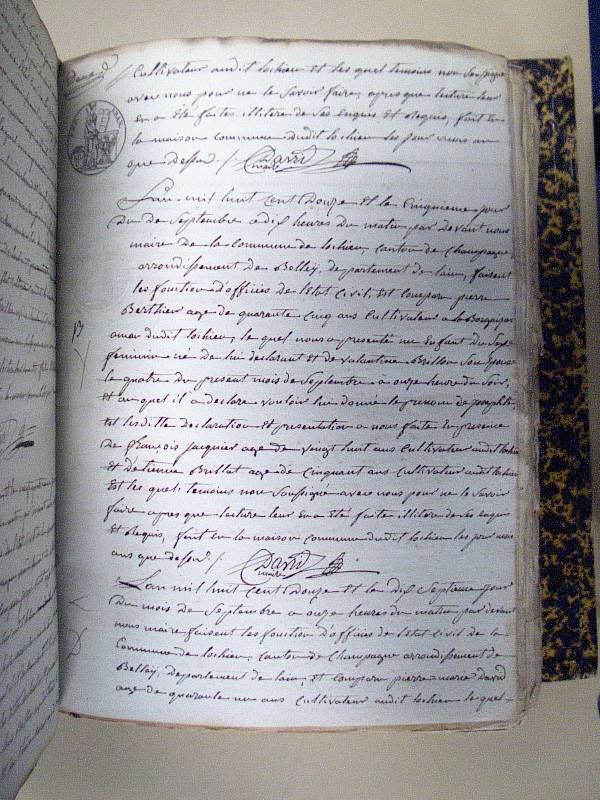 Cultivateur audit lochieu et les quel temoins non soussigne
avec nous pour ne le savoir faire, apres que lecture leur
en a été faites illitere de ses enquis et requis, fait en
la maison commune dudit lochieu les jour mois an
que dessu /. David
maire
Lan mil huit cent Douze et le cinquieme jour
Du de Septembre a dix heures du matin par Devant nous
maire de la commune de lochieu, canton de Champagne,
arrondissement de Belley, departement de lain, faisent
les fonction d'officies de letat Civil, est comparu pierre
Berthier age de quarante cinq ans Cultivateur a la
dudit lochieu, le quel nous a presenté un Enfant du Sexe
feminin né de lui declarant et de valantine Brillon Son Epouse
le quatre du present mois de Septembre a onze heure du Soir,
et au quel il a declare vouloir lui donné le prenom de josephte
et les ditte declaration et presentation a nous faite en presence
de françois jacquier age de vingt huit ans Cultivateur audit lochieu
et d'etienne Brillat age de cinquant ans Cultivateur audit lochieu
Est les quels temoins non Soussigné avec nous pour ne le Savoir
faire apres que lecture leur en a été faite illitere de ses enquis
et requis, fait en la maison commune dudit lochieu les jour mois
ans que dessu /. David
maire
Lan mil huit cent Douze et le dix Septieme jour
Du mois de Septembre a onze heures du matin par devant
nous maire faisent les fonction d'officies de letat Civil de la
Commune de lochieu, canton de Champagne arrondissement de
Belley, Departement de lain, est comparu pierre marie David
age de quarante un ans Cultivateur audit lochieu le quel